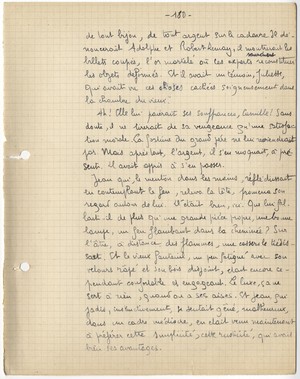 - 180 -
de tout bijou, de tout argent sur le cadavre. Il dé-
noncerait Adolphe et Robert Lemay, il montrerait les
billets coupés, l'or mortelé où les experts reconstitue
les objets déformés. Et il avait un témoin, Juliette,
qui avait vu ces choses cachées soigneusement dans
la chambre du vieux.
Ah! Elle lui paierait ses souffrances, Camille! Sans
doute, il ne tirerait de sa vengeance qu'une satisfac-
tion morale. La fortune du grand-père ne lui reviendrait
pas. Mais après tout, l'argent, il s'en moquait, à pré-
sent. Il avait appris à s'en passer.
Jean qui, le menton dans les mains, réfléchissait
en contemplant le feu, releva la tête, promena son
regard autour de lui. C'était bien, ici. Que lui fal-
lait-il de plus qu'une grande pièce propre, une bonne
lampe, un feu flambant dans la cheminée? Sur
l'âtre, à distance des flammes, une casserole tiédis-
sait. Et le vieux fauteuil, un peu fatigué avec son
velours râpé et son bois disjoint, était encore ce-
pendant confortable et engageant. Le luxe, ça ne
sert à rien, quand on a ses aises. Et Jean qui
jadis, instinctivement, se sentait gêné, malheureux,
dans un cadre médiocre, en était venu maintenant
à préférer cette simplicité, cette rusticité, qui avait
bien ses avantages.